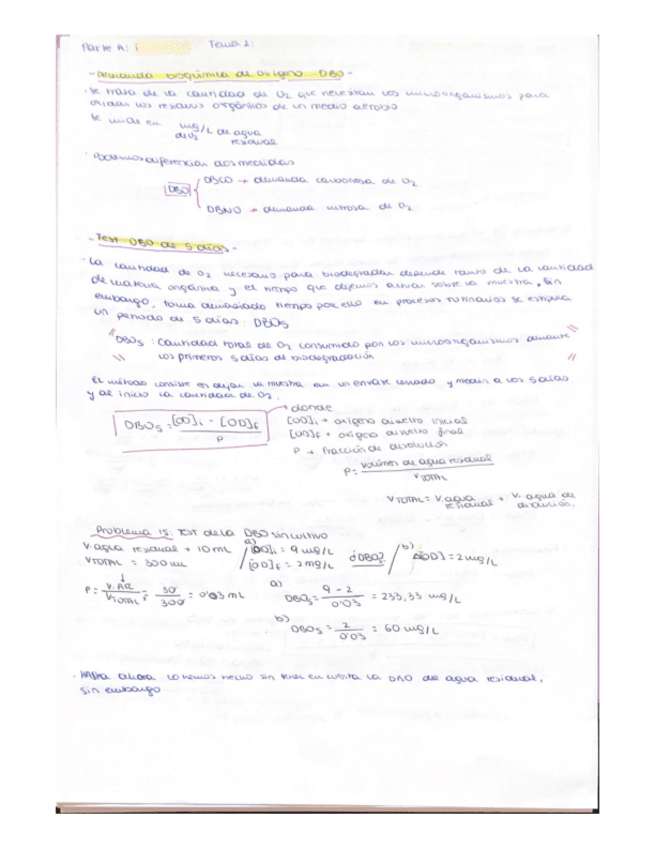 Parte A: Tema 2:
- Demanda bioquímica de oxígeno DBO -
· Se trata de la cantidad de O2 que necesitan los microorganismos para
oxidar los residuos orgánicos de un medio aerobio
Se mide en mg/L de agua
de O2 residual
· Podemos diferenciar dos medidas
DBO { DBCO → demanda carbonosa de O2
DBNO → demanda nitrosa de O2
- Test DBO de 5 días -
· La cantidad de O2 necesario para biodegradar depende tanto de la cantidad
de materia orgánica y el tiempo que dejemos actuar sobre la muestra. Sin
embargo, toma demasiado tiempo por ello en procesos rutinarios se estipula
un periodo de 5 días: DBO5
" DBO5: Cantidad total de O2 consumido por los microorganismos durante "
" los primeros 5 días de biodegradación "
El método consiste en dejar la muestra en un envase cerrado y medir a los 5 días
y al inicio la cantidad de O2.
DBO5 = [OD]i - [OD]f / P
→ donde
[OD]i → oxígeno disuelto inicial
[OD]f → oxígeno disuelto final
P → fracción de disolución
P = volumen de agua residual / V TOTAL
V TOTAL = V. agua residual + V. agua de dilución.
Problema 15: Test de la DBO sin cultivo
V. agua residual → 10 mL / a) [OD]i = 9 mg/L ¿DBO5? / b) Δ[OD] = 2 mg/L
V TOTAL = 300 mL / [OD]f = 2 mg/L
P = V. AR / V TOTAL = 30 / 300 = 0'03 mL
a) DBO5 = 9 - 2 / 0'03 = 233,33 mg/L
b) DBO5 = 2 / 0'03 = 60 mg/L
· Hasta ahora lo hemos hecho sin tener en cuenta la DBO de agua residual,
sin embargo